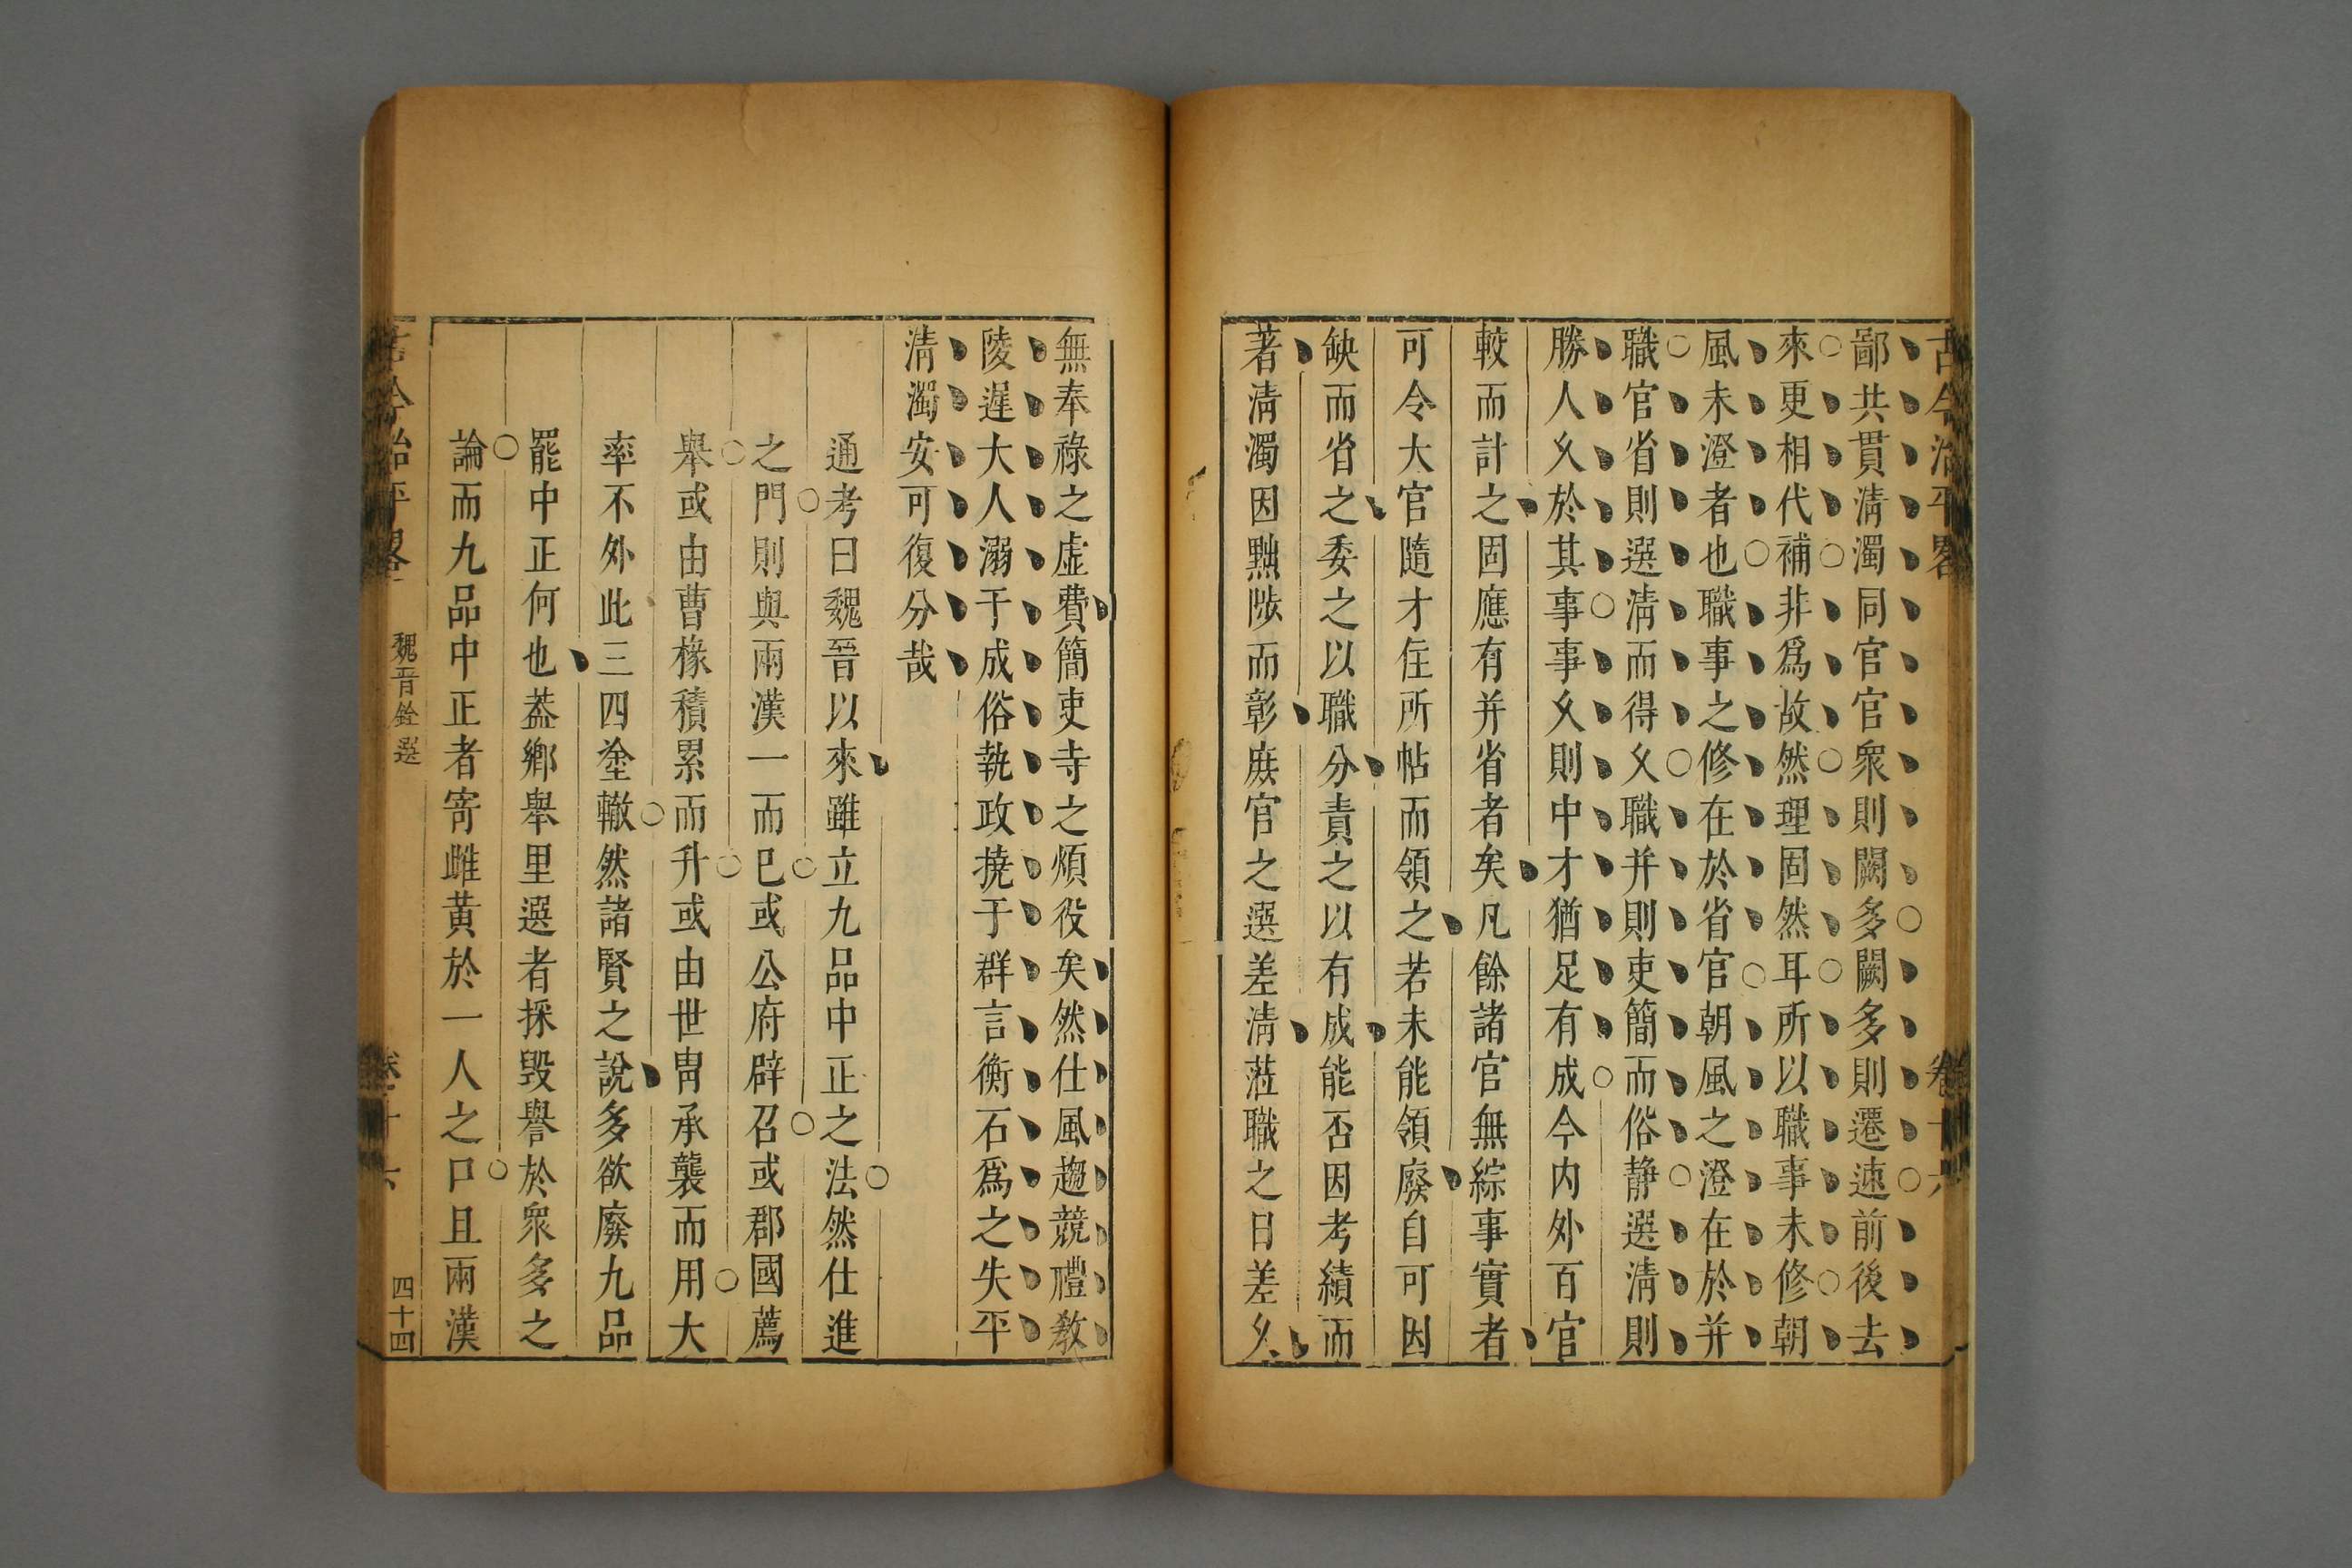 古今治平畧 卷十六
鄙共貫淸濁同官官衆則闕多闕多則遷速前後去
來更相代補非爲故然理固然耳所以職事未修朝
風未澄者也職事之修在於省官朝風之澄在於并
職官省則選淸而得久職并則吏簡而俗静選淸則
勝人久於其事事久則中才猶足有成今内外百官
較而計之固應有并省者矣凡餘諸官無綜事實者
可令大官隨才住所帖而領之若未能領廢自可因
缺而省之委之以職分責之以有成能否因考績而
著淸濁因黜陟而彰庶官之選差淸蒞職之日差久
無奉祿之虚費簡吏寺之煩役矣然仕風趨競禮敎
陵遲大人溺于成俗執政撓于群言衡石爲之失平
淸濁安可復分哉
通考曰魏晉以來雖立九品中正之法然仕進
之門則與兩漢一而已或公府辟召或郡國薦
舉或由曹椽積累而升或由世冑承襲而用大
率不外此三四塗轍然諸賢之說多欲廢九品
罷中正何也葢鄉舉里選者採毀譽於衆多之
論而九品中正者寄雌黄於一人之口且兩漢
古今治平畧 魏晉銓選 卷十六 四十四